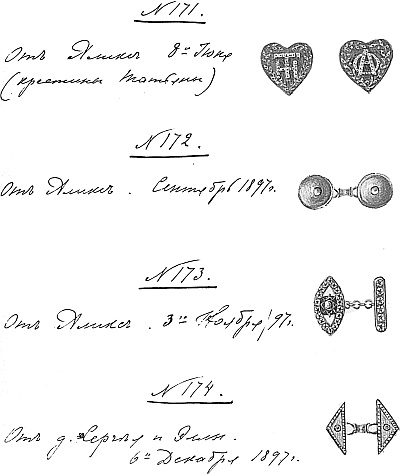 N 171.
Отъ Аликсъ 8го Июня
(крестины Татьяны)
N 172.
Отъ Аликсъ. Сентябрь 1897г.
N 173.
Отъ Аликсъ. 3го Ноября 97г.
N 174.
Отъ д. Сергѣя и Эллы.
6го Декабря 1897г.